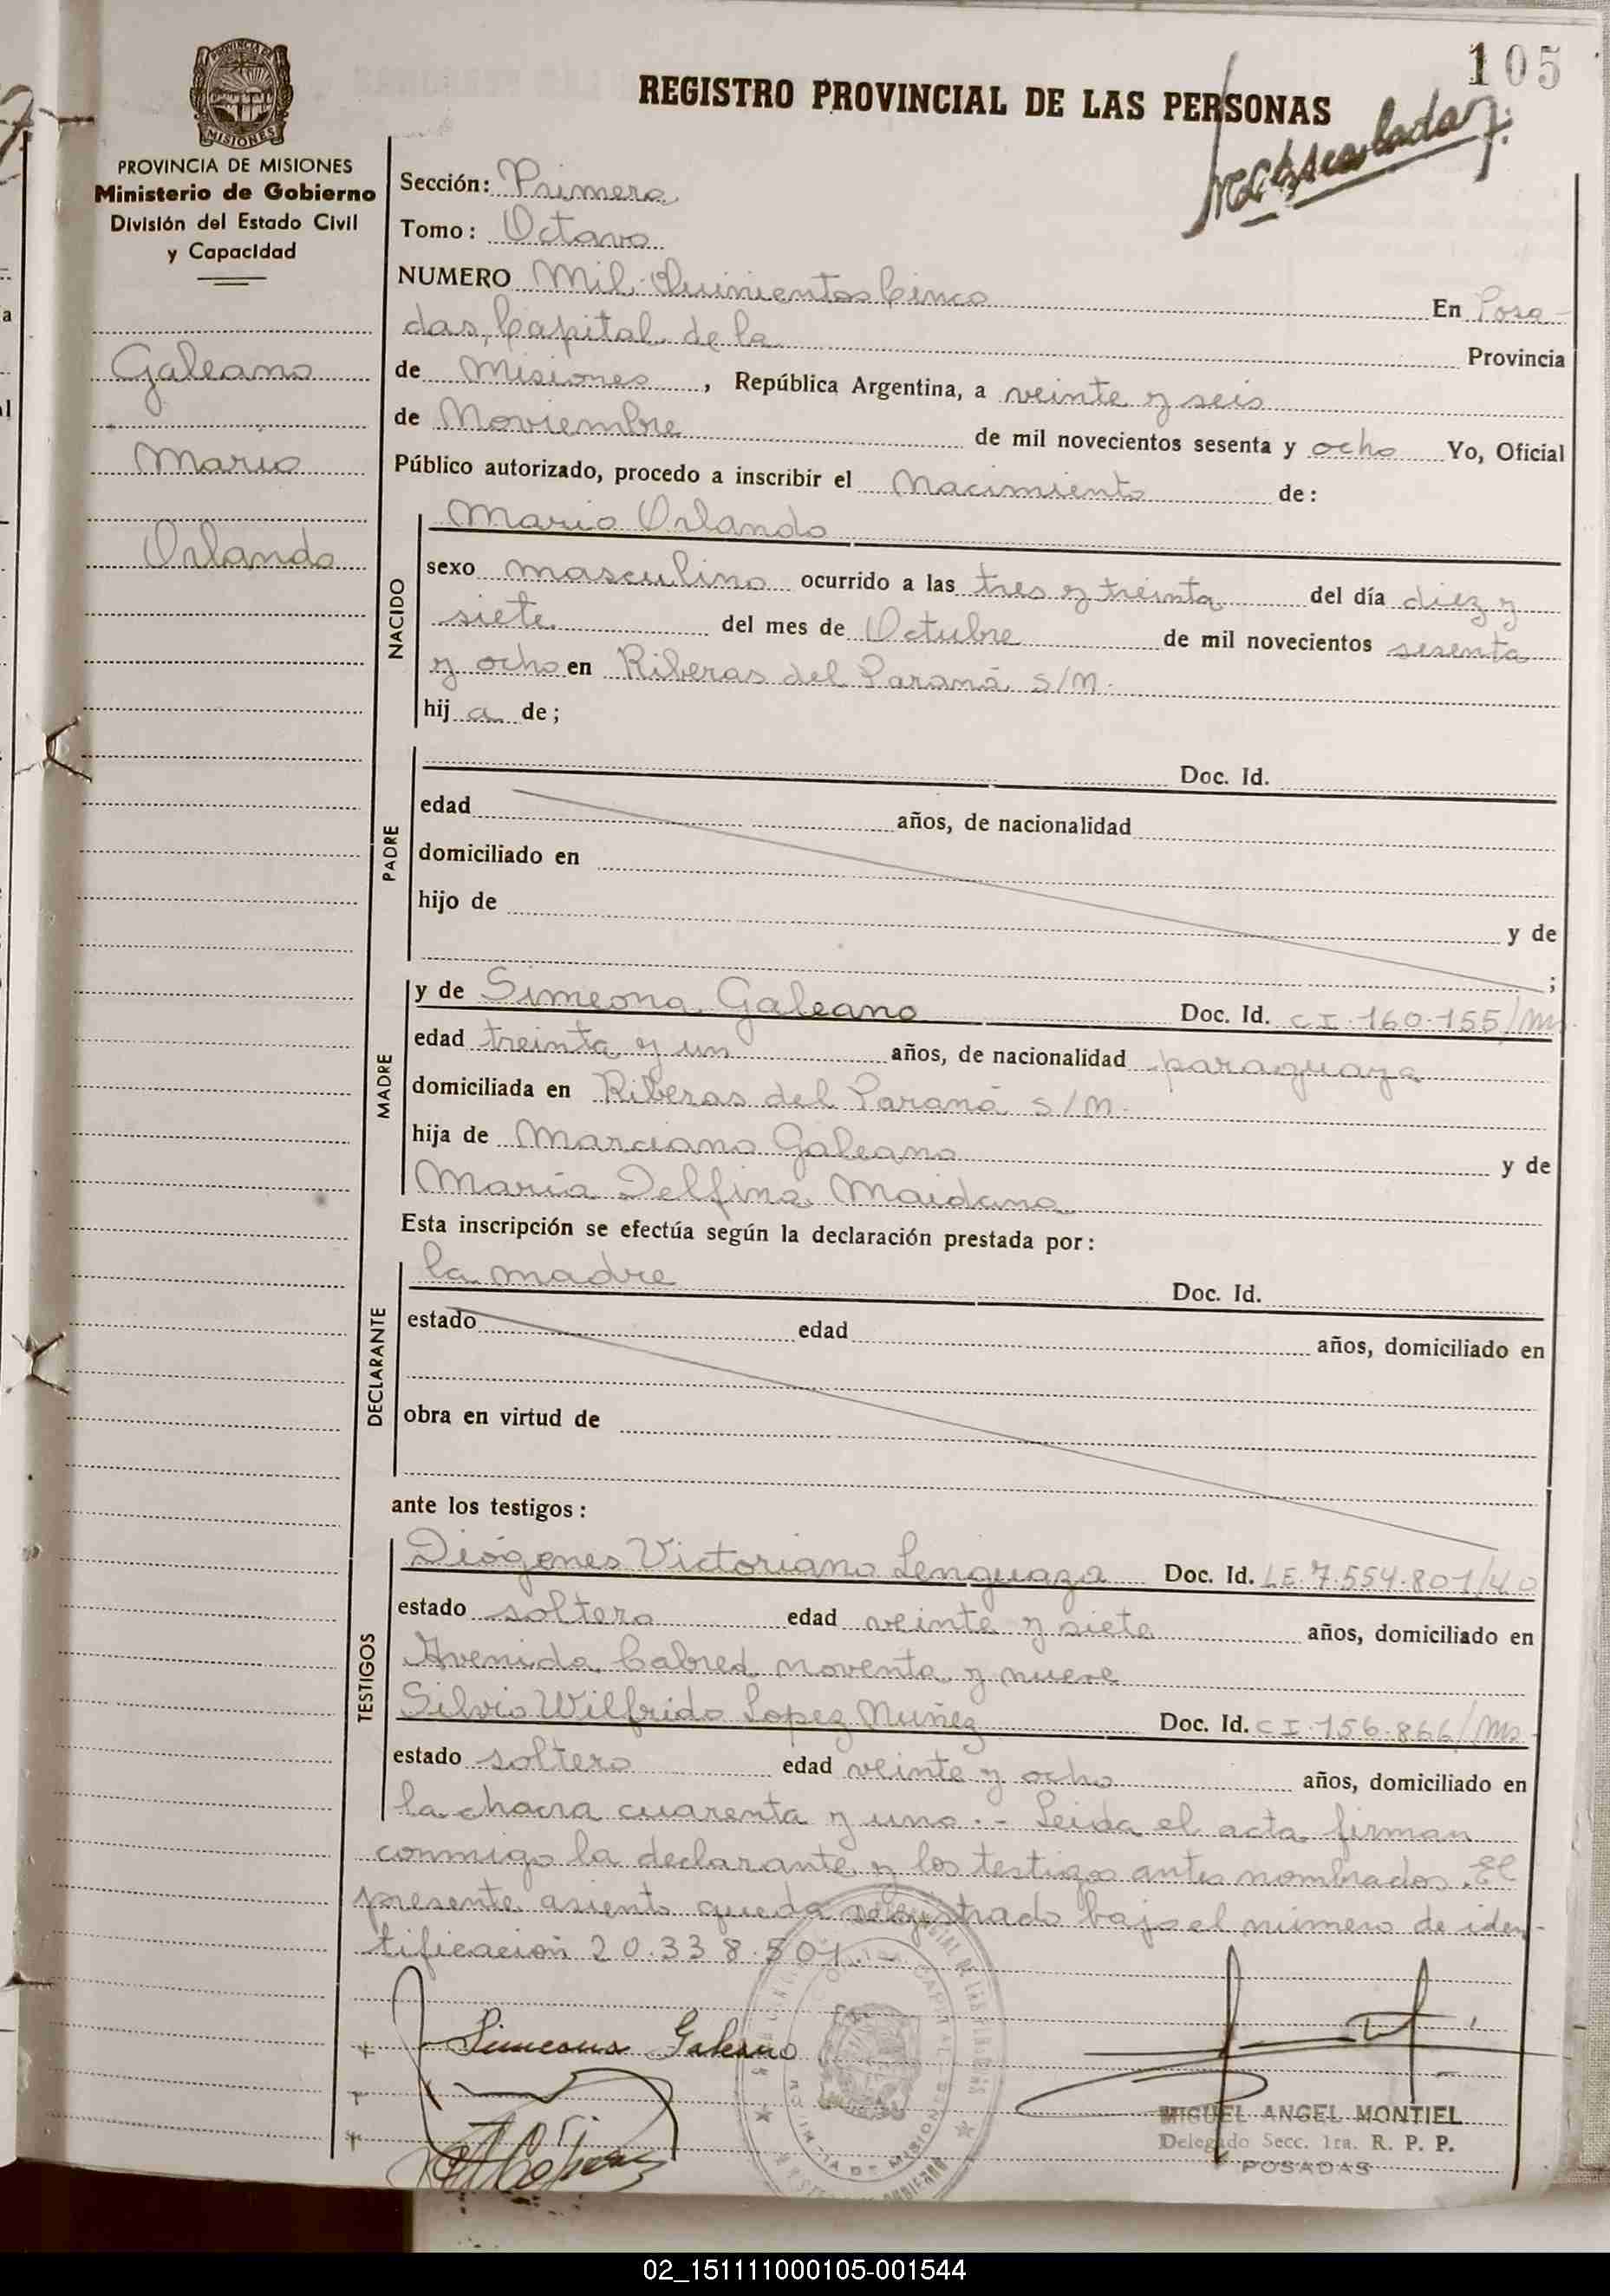 105
REGISTRO PROVINCIAL DE LAS PERSONAS
PROVINCIA DE MISIONES
Ministerio de Gobierno
División del Estado Civil
y Capacidad
Galeano
Mario
Orlando
Sección: Primera
Tomo: Octavo
NUMERO Mil Quinientos Cinco En Posa-
das, Capital de la Provincia
de Misiones, República Argentina, a veinte y seis
de Noviembre de mil novecientos sesenta y ocho Yo, Oficial
Público autorizado, procedo a inscribir el Nacimiento de:
NACIDO
Mario Orlando
sexo masculino ocurrido a las tres y treinta del día diez y
siete del mes de Octubre de mil novecientos sesenta
y ocho en Riberas del Paraná s/n.
hij a de;
PADRE
Doc. Id.
edad años, de nacionalidad
domiciliado en
hijo de y de
;
MADRE
y de Simeona Galeano Doc. Id. CI. 160.155/Mns.
edad treinta y un años, de nacionalidad paraguaya
domiciliada en Riberas del Paraná s/n.
hija de Marciano Galeano y de
María Delfina Maidana
Esta inscripción se efectúa según la declaración prestada por:
DECLARANTE
la madre Doc. Id.
estado edad años, domiciliado en
obra en virtud de
ante los testigos:
TESTIGOS
Diógenes Victoriano Lenguaza Doc. Id. LE 7.554.801/40
estado soltero edad veinte y siete años, domiciliado en
Avenida Cabred noventa y nueve
Silvio Wilfrido Lopez Nuñez Doc. Id. CI. 156.866/Mns.
estado soltero edad veinte y ocho años, domiciliado en
la chacra cuarenta y uno.- Leida el acta firman
conmigo la declarante y los testigos antes nombrados. El
presente asiento queda registrado bajo el número de iden-
tificación 20.338.501.
Simeona Galeano
MIGUEL ANGEL MONTIEL
Delegado Secc. 1ra. R. P. P.
POSADAS
02_151111000105-001544